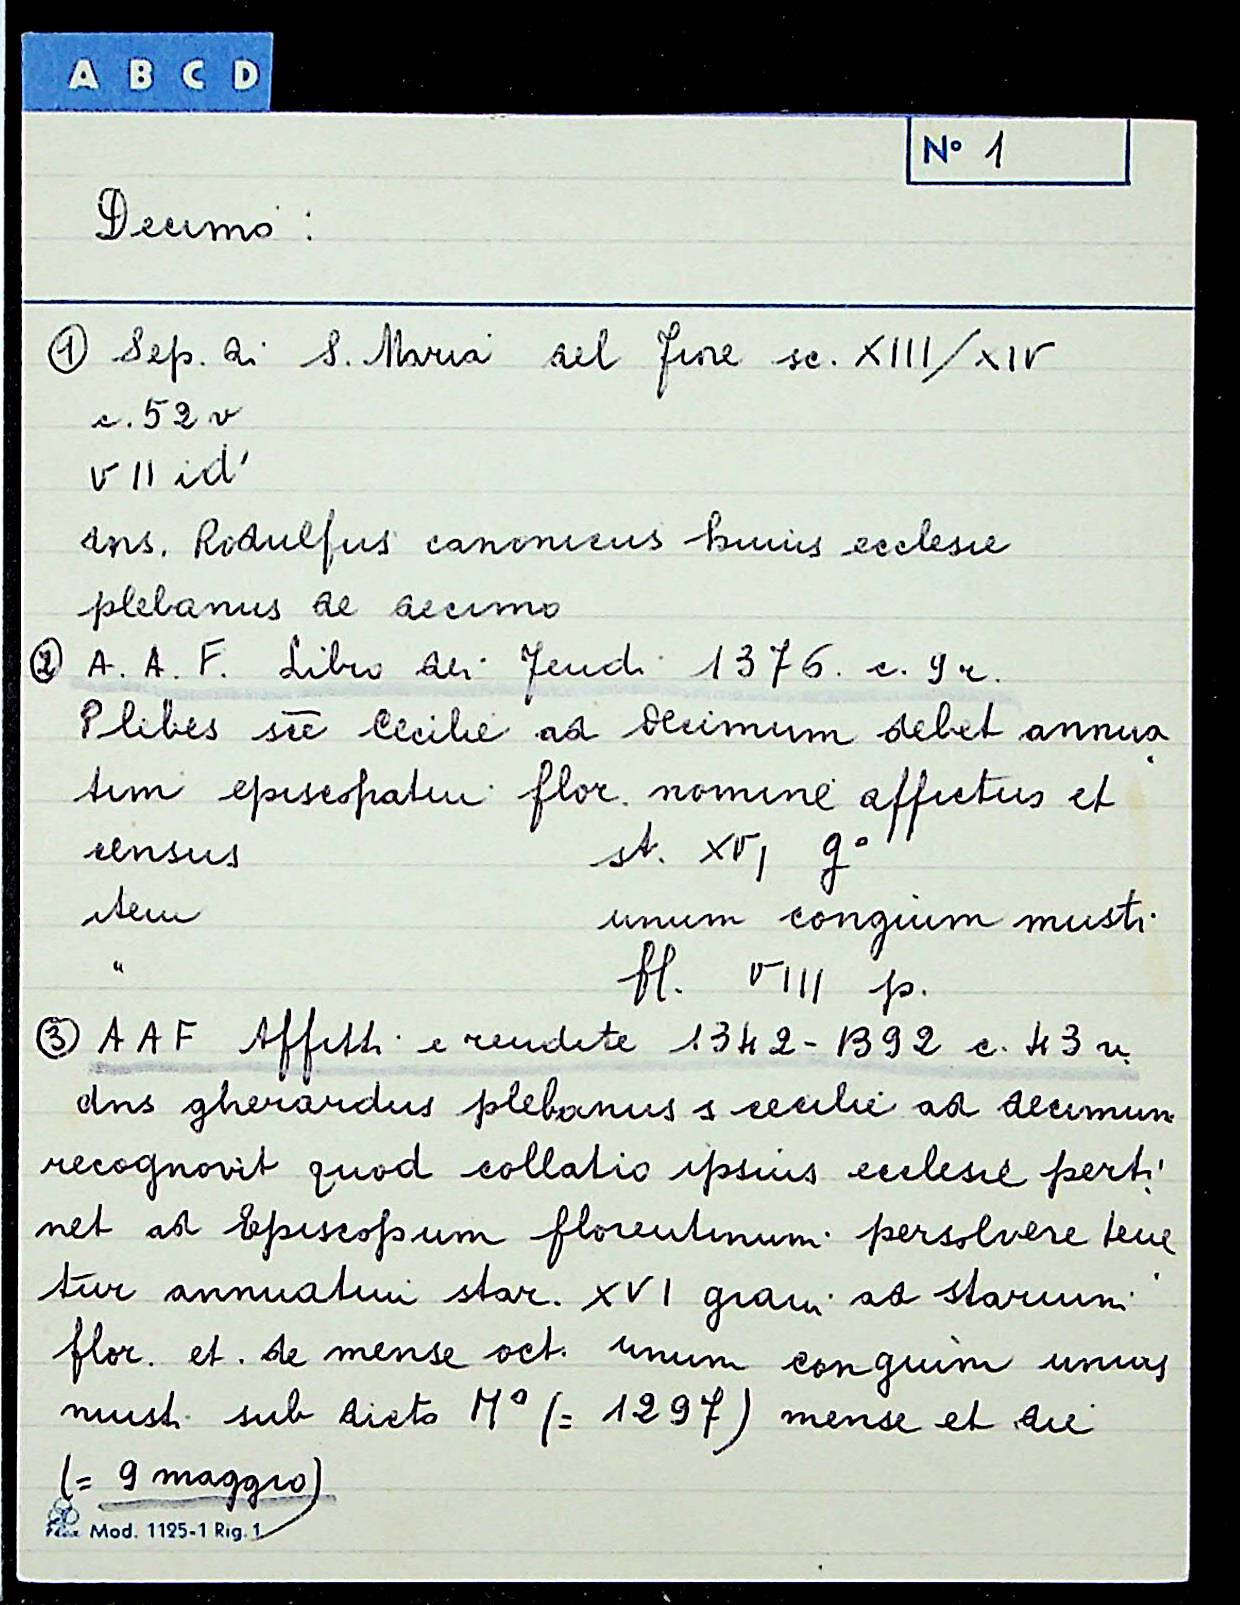 A B C D
Nº 1
Decimo :
① Sep. di S. Maria del Fiore sc. XIII/XIV
c. 52 v
VII id'
dns. Rodulfus canonicus huius ecclesie
plebanus de decimo
② A. A. F. Libro dei Feudi 1376. c. 9 r.
Plebes sce Cecilie ad Decimum debet annua
tim episcopatui flor. nomine affictus et
census st. XVI gº
item unum congium musti
" fl. VIII p.
③ AAF Affitti e rendite 1342-1392 c. 43 v.
dns gherardus plebanus s cecilie ad decimum
recognovit quod collatio ipsius ecclesie perti
net ad Episcopum florentinum persolvere tene
tur annuatim star. XVI grani ad starium
flor. et. de mense oct. unum congium unius
musti sub dicto Mº (= 1297) mense et die
(= 9 maggio)
Flex Mod. 1125-1 Rig. 1